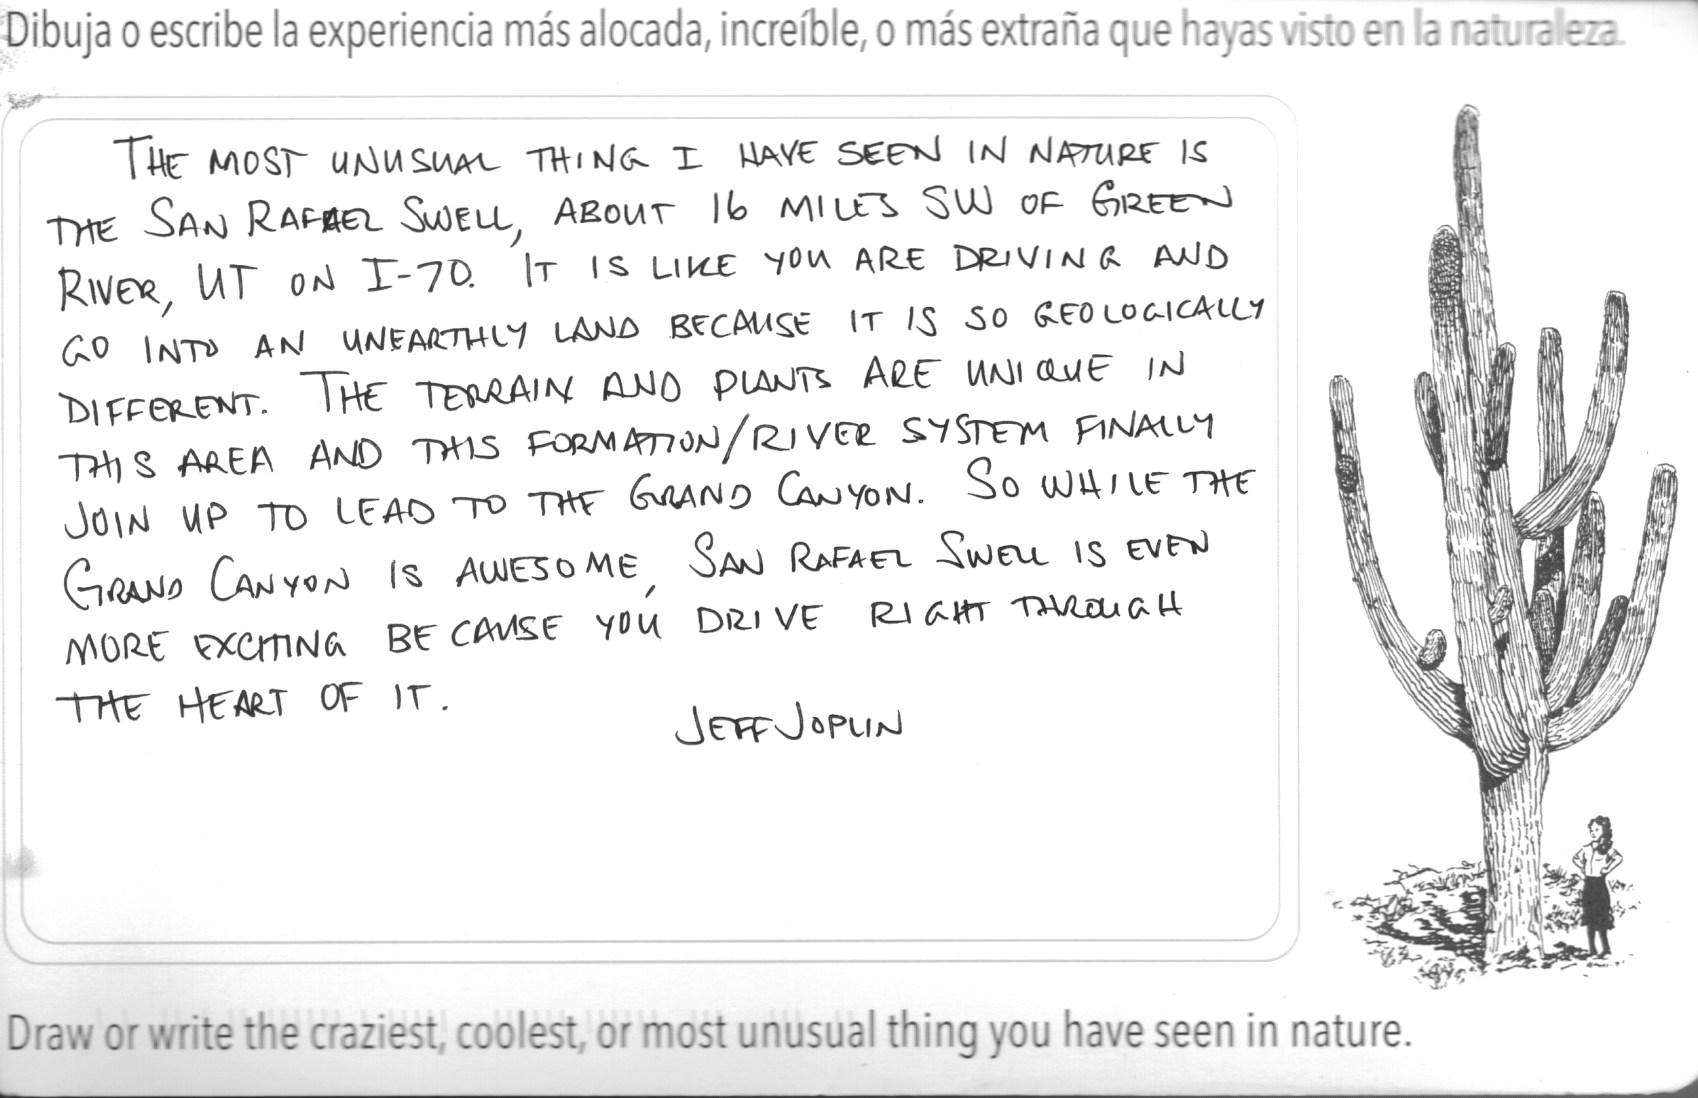 Dibuja o escribe la experiencia más alocada, increíble, o más extraña que hayas visto en la naturaleza.
THE MOST UNUSUAL THING I HAVE SEEN IN NATURE IS
THE SAN RAFAEL SWELL, ABOUT 16 MILES SW OF GREEN
RIVER, UT ON I-70. IT IS LIKE YOU ARE DRIVING AND
GO INTO AN UNEARTHLY LAND BECAUSE IT IS SO GEOLOGICALLY
DIFFERENT. THE TERRAIN AND PLANTS ARE UNIQUE IN
THIS AREA AND THIS FORMATION/RIVER SYSTEM FINALLY
JOIN UP TO LEAD TO THE GRAND CANYON. SO WHILE THE
GRAND CANYON IS AWESOME, SAN RAFAEL SWELL IS EVEN
MORE EXCITING BECAUSE YOU DRIVE RIGHT THROUGH
THE HEART OF IT.
JEFF JOPLIN
Draw or write the craziest, coolest, or most unusual thing you have seen in nature.